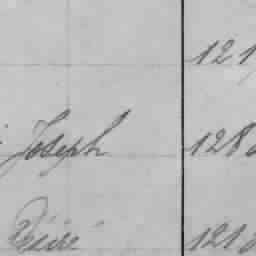 121
Joseph 128
Désiré 121